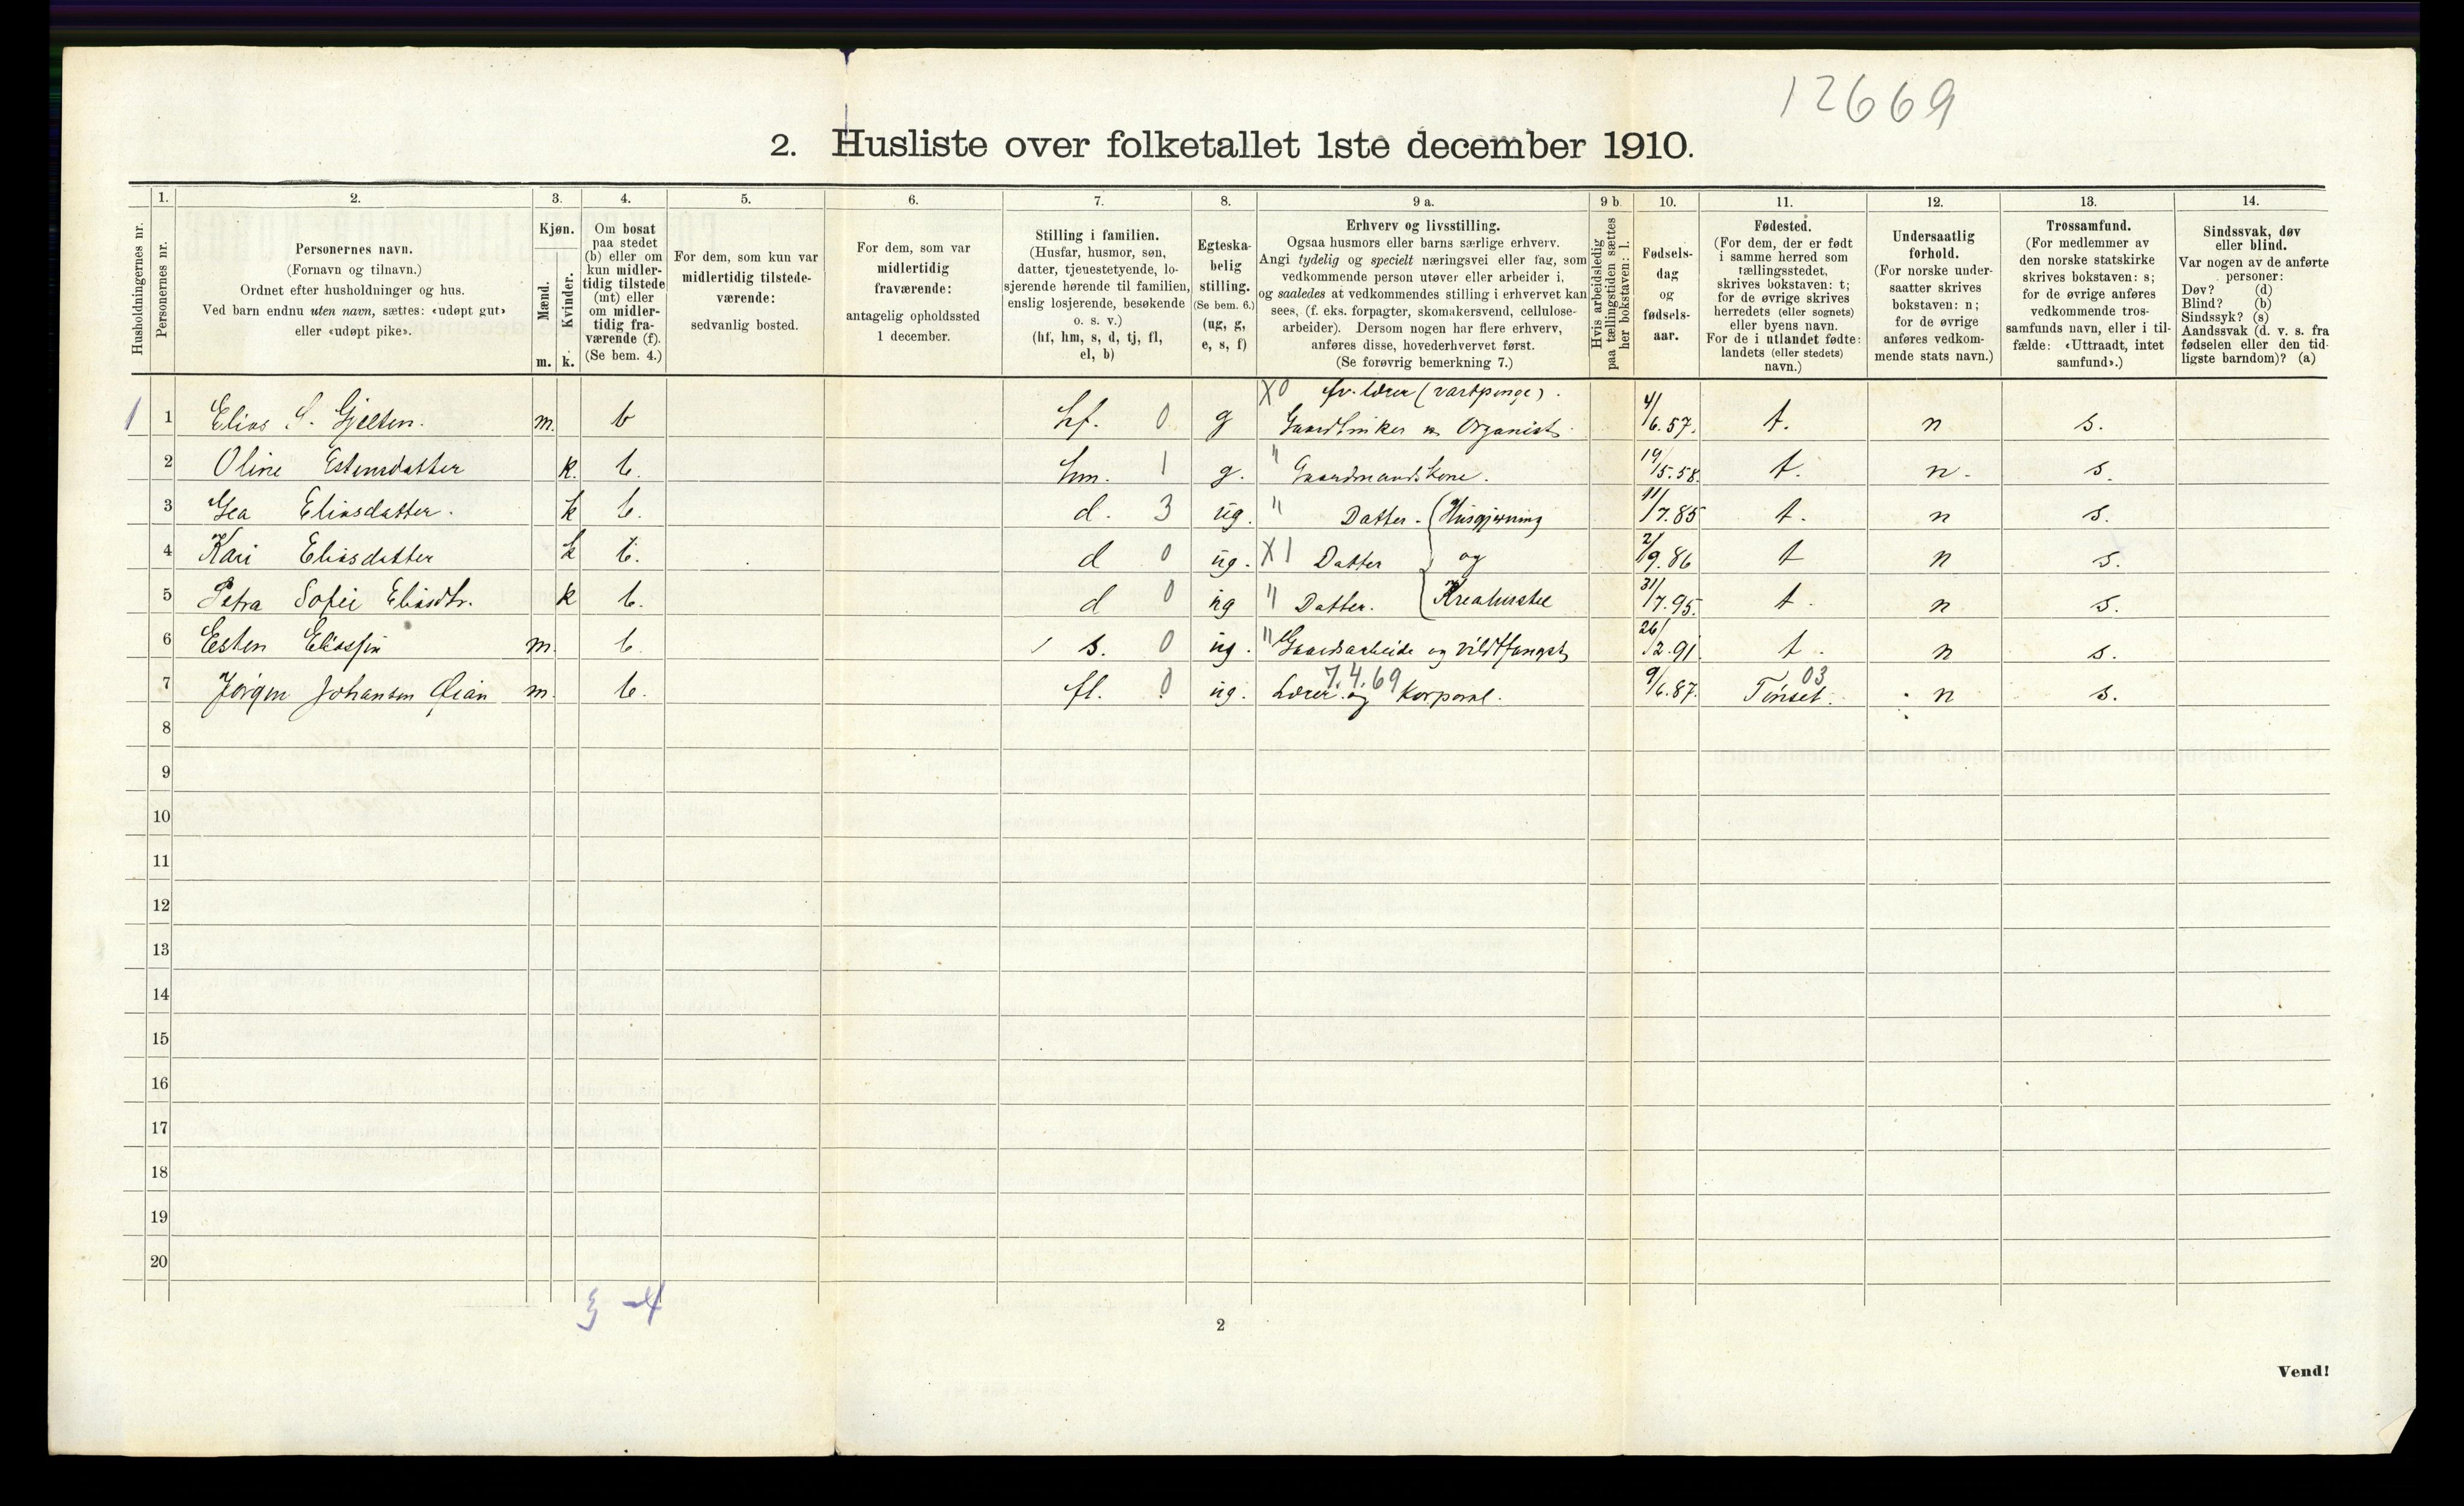 12669
2. Husliste over folketallet 1ste december 1910.
Husholdningernes nr.
1.
Personernes nr.
2.
Personernes navn.
(Fornavn og tilnavn.)
Ordnet efter husholdninger og hus.
Ved barn endnu uten navn, sættes: «udøpt gut»
eller «udøpt pike».
3.
Kjøn.
Mænd.
m.
Kvinder.
k.
4.
Om bosat
paa stedet
(b) eller om
kun midler-
tidig tilstede
(mt) eller
om midler-
tidig fra-
værende (f).
(Se bem. 4.)
5.
For dem, som kun var
midlertidig tilstede-
værende:
sedvanlig bosted.
6.
For dem, som var
midlertidig
fraværende:
antagelig opholdssted
1 december.
7.
Stilling i familien.
(Husfar, husmor, søn,
datter, tjenestetyende, lo-
sjerende hørende til familien,
enslig losjerende, besøkende
o. s. v.)
(hf, hm, s, d, tj, fl,
el, b)
8.
Egteska-
belig
stilling.
(Se bem. 6.)
(ug, g,
e, s, f)
9 a.
Erhverv og livsstilling.
Ogsaa husmors eller barns særlige erhverv.
Angi tydelig og specielt næringsvei eller fag, som
vedkommende person utøver eller arbeider i,
og saaledes at vedkommendes stilling i erhvervet kan
sees, (f. eks. forpagter, skomakersvend, cellulose-
arbeider). Dersom nogen har flere erhverv,
anføres disse, hovederhvervet først.
(Se forøvrig bemerkning 7.)
9 b.
Hvis arbeidsledig
paa tællingstiden sættes
her bokstaven: l.
10.
Fødsels-
dag
og
fødsels-
aar.
11.
Fødested.
(For dem, der er født
i samme herred som
tællingsstedet,
skrives bokstaven: t;
for de øvrige skrives
herredets (eller sognets)
eller byens navn.
For de i utlandet fødte:
landets (eller stedets)
navn.)
12.
Undersaatlig
forhold.
(For norske under-
saatter skrives
bokstaven: n;
for de øvrige
anføres vedkom-
mende stats navn.)
13.
Trossamfund.
(For medlemmer av
den norske statskirke
skrives bokstaven: s;
for de øvrige anføres
vedkommende tros-
samfunds navn, eller i til-
fælde: «Uttraadt, intet
samfund».)
14.
Sindssvak, døv
eller blind.
Var nogen av de anførte
personer:
Døv? (d)
Blind? (b)
Sindssyk? (s)
Aandssvak (d. v. s. fra
fødselen eller den tid-
ligste barndom)? (a)
X0 fv. lærer (vartpenge).
1 1 Elias S. Gjelten. m. b hf. 0 g Gaardbruker og Organist 4/6.57. t. n s.
2 Oline Estensdatter k. b. hm. 1 g. " Gaardmandskone. 19/5.58. t. n. s.
3 Gea Eliasdatter. k b. d. 3 ug. " Datter. Husgjerning 11/7.85 t. n s.
4 Kari Eliasdatter k b. d 0 ug. X1 Datter og 2/9.86 t n s.
5 Petra Sofie Eliasdtr. k b. d 0 ug " Datter. Kreaturstel 31/7.95. t. n s.
6 Esten Eliassøn m. b. s. 0 ug. " Gaardsarbeide og vildtfangst 26/2.91. t. n s.
7 Jørgen Johansen Øian m. b. fl. 0 ug. 7.4.69 Lærer og Korporal. 9/6.87. 03 Tønset. n s.
8
9
10
11
12
13
14
15
16
17
18
19
20
3 - 4
2
Vend!